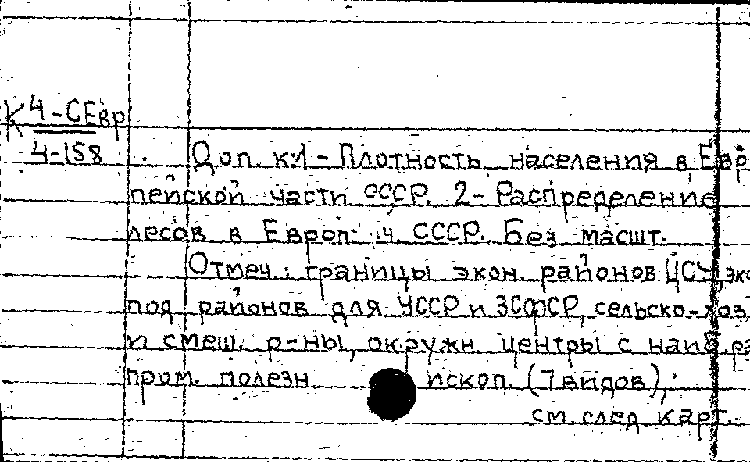 К 4-СЕвр
4-158
Доп. к.1 - Плотность населения в Евро
пейской части СССР. 2 - Распределение
лесов в Европ. ч. СССР. Без масшт.
Отмеч.: границы экон. районов ЦСУ, эко
под районов для УССР и ЗСФСР, сельско-хоз.
и смеш. р-ны, окружн. центры с наиб. ра
пром. полезн. ископ. (7 видов),
см. след. карт.